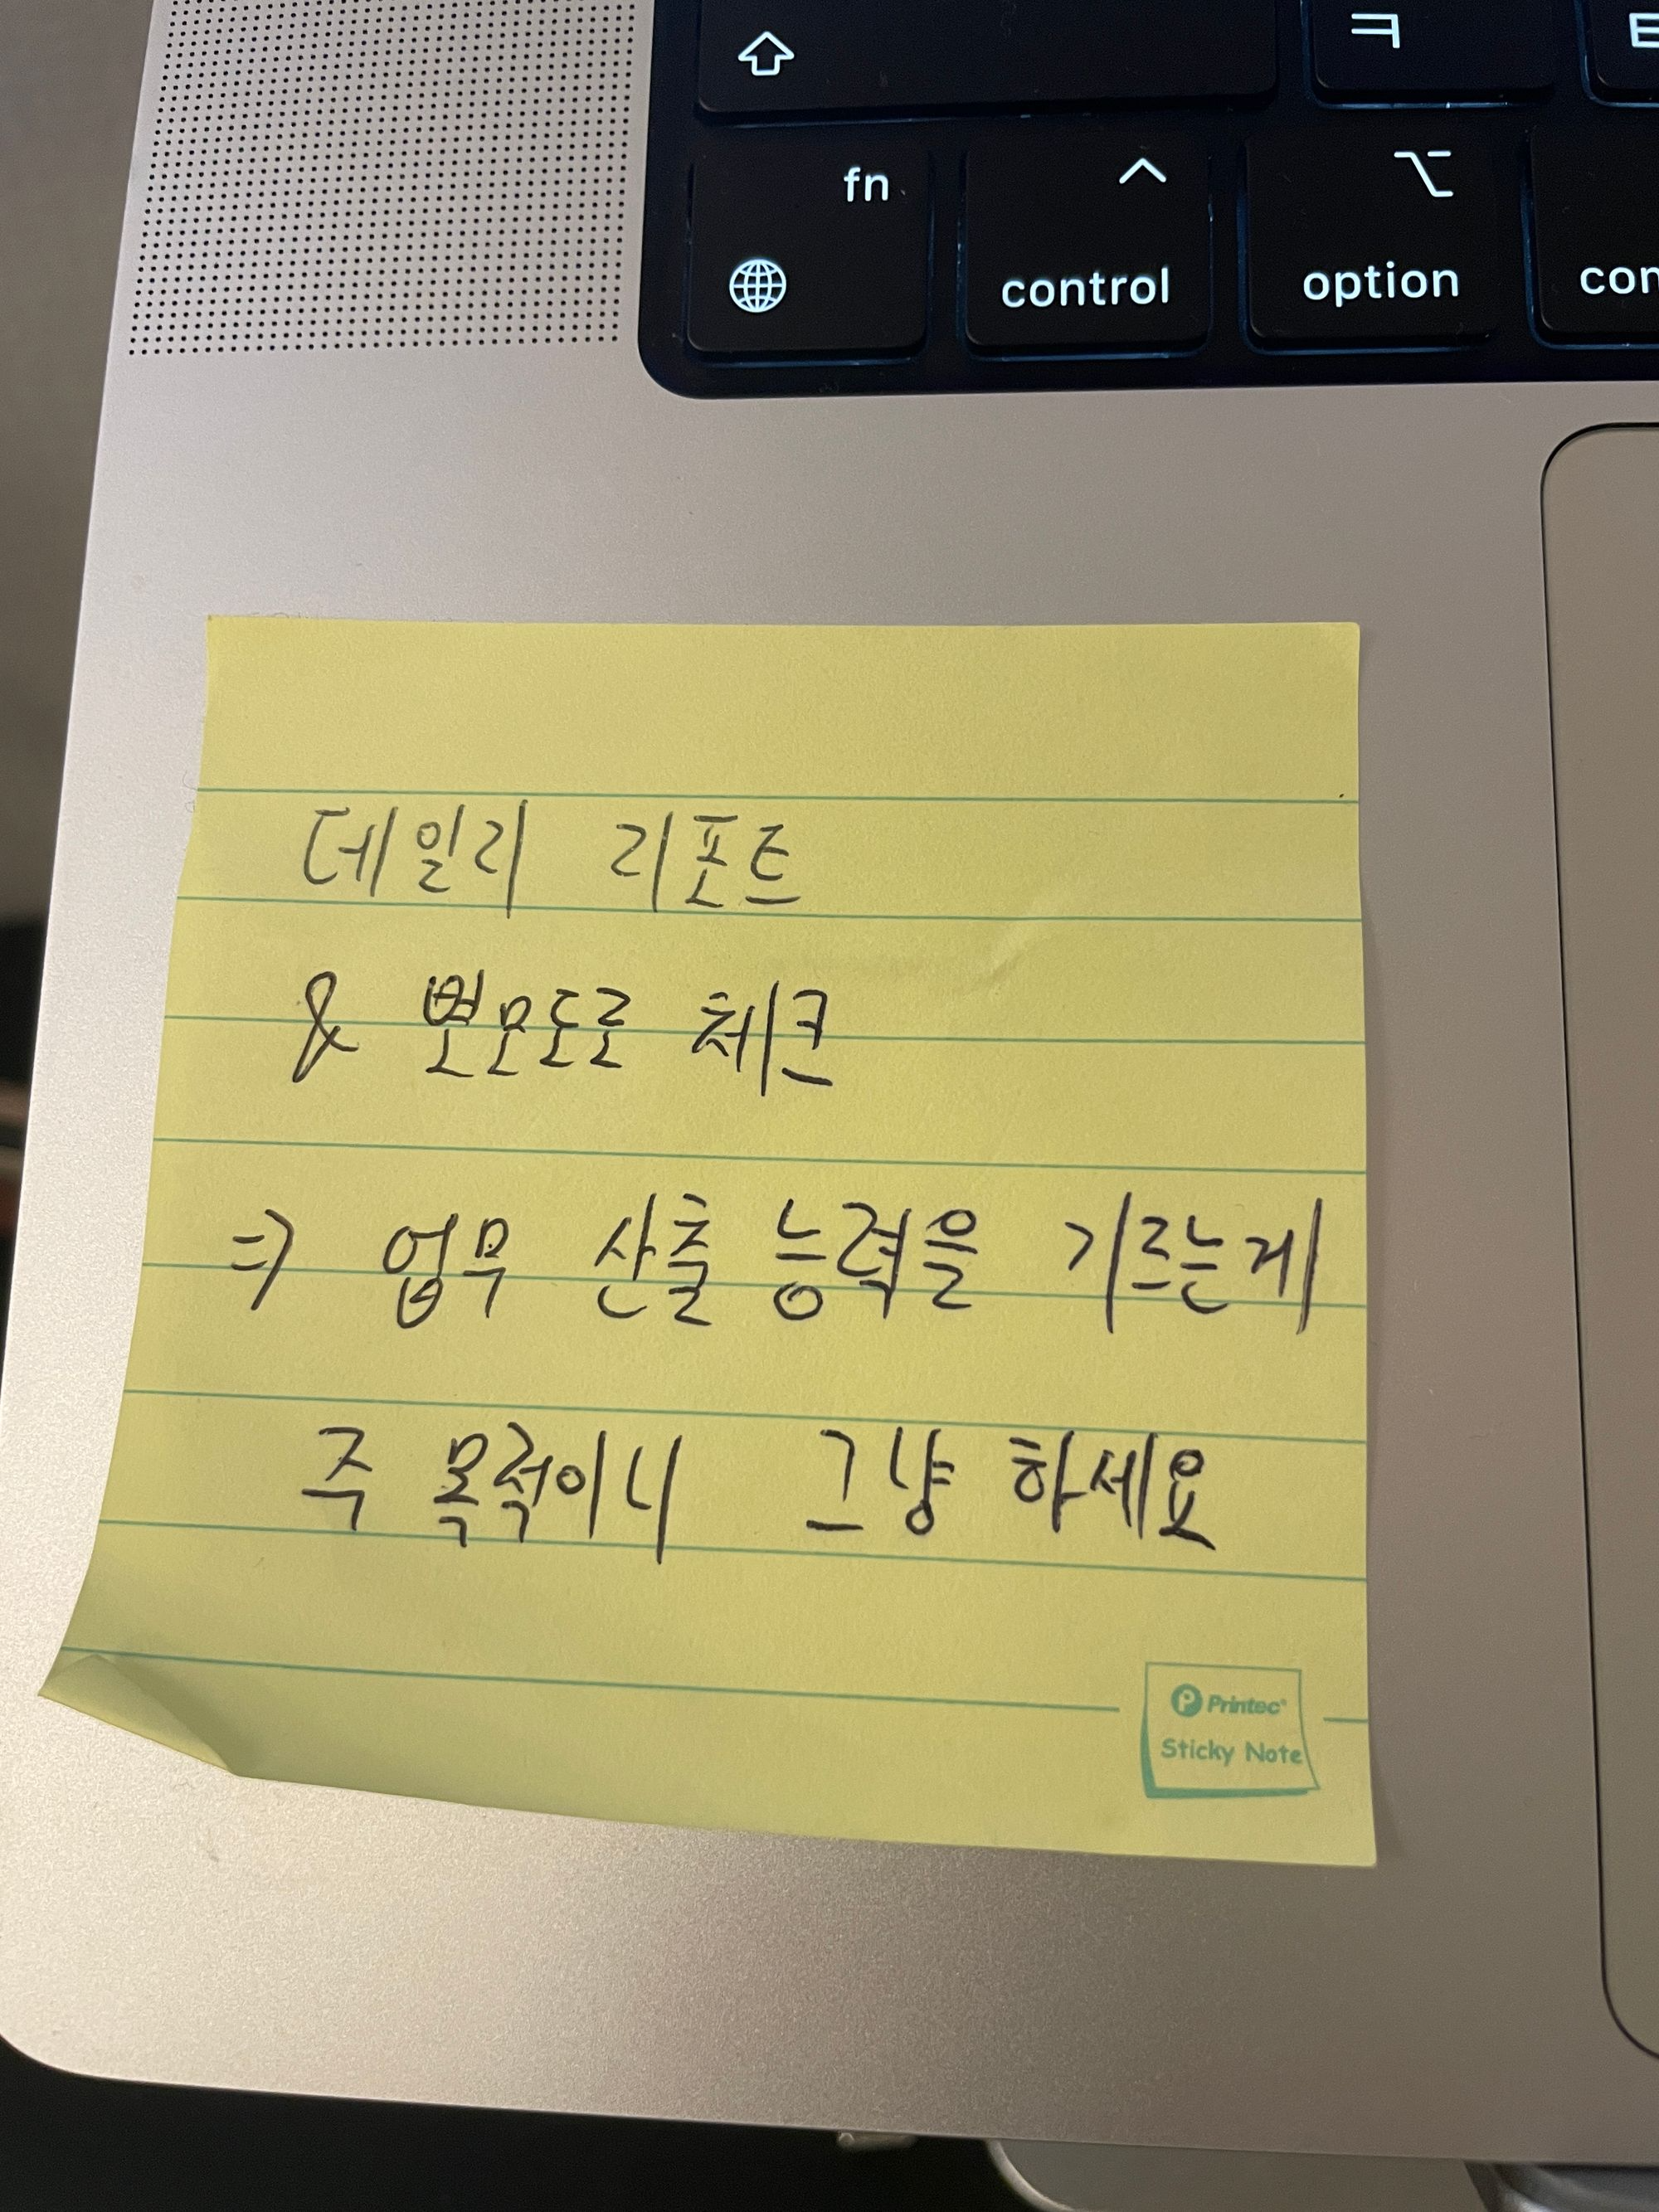 ㅋ
fn
control
option
데일리 리포트
& 뽀모도로 체크
=> 업무 산출 능력을 기르는게
주 목적이니 그냥 하세요
Printec
Sticky Note